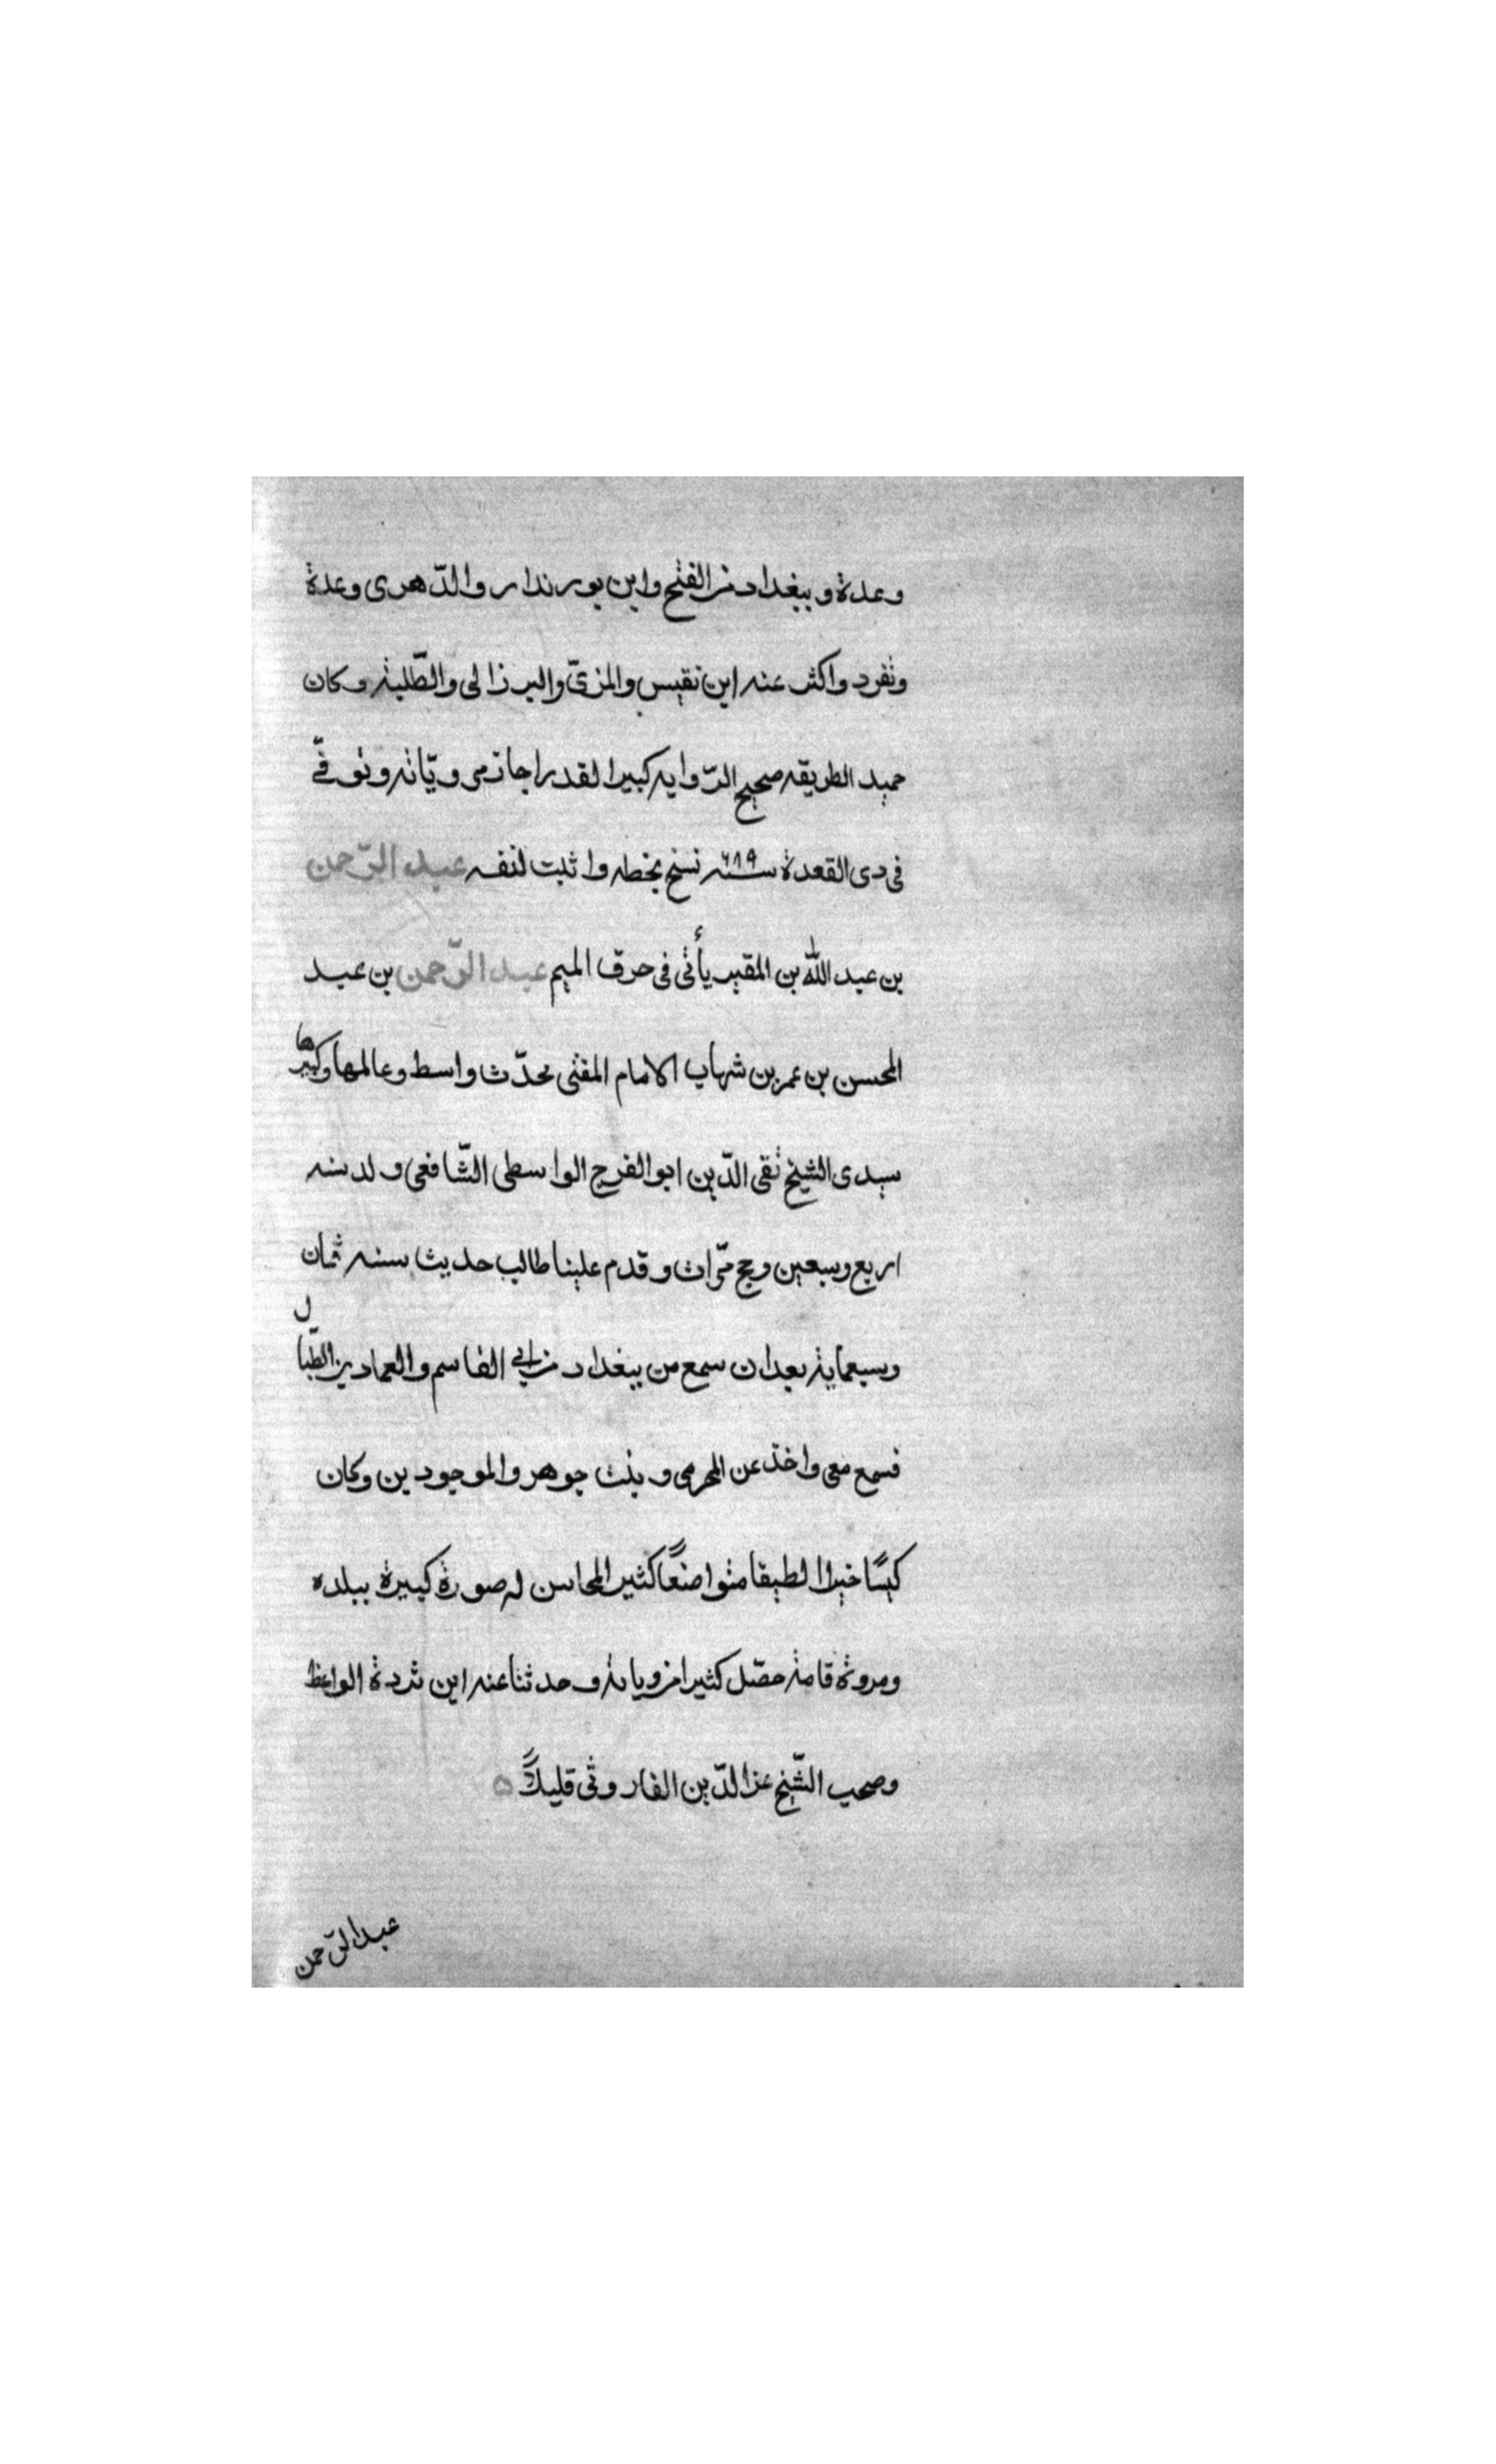 وعدة وببغداد من الفتح وابن بورندار والدّاهرى وعدة
وتفرد واكثر عنه ابن نفيس والمزىّ والبرزالى والطّلبة وكان
حميد الطريقه صحيح الرّوايه كبير القدر اجازمى ويّاته وتوفّى
فى دى القعدة سنة ٦٨٩ نسخ بخطه واثبت لنفسه عبد الرّحمن
بن عبد الله بن المقير يأتى فى حرف الميم عبد الرّحمن بن عبد
المحسن بن عمر بن شهاب الامام المفتى محدّث واسط وعالمها وكبيرها
سيدى الشيخ تقى الدّين ابو الفرج الواسطى الشّافعى ولد سنه
اربع وسبعين وحج مرّات وقدم علينا طالب حديث سنه ثمان
وسبعماية بعد ان سمع من ببغداد من ابى القاسم والعماد بن الطّبال
فسمع معى واخذ عن المخرمى وبنت جوهر والموجودين وكان
كيسًا خيرا لطيفا متواضعًا كثير المحاسن له صورة كبيرة ببلده
ومروة تامة حصّل كثيرا من وياته وحدثنا عنه ابن ثردة الواعظ
وصحب الشّيخ عز الدّين الفاروثى قليلاً ه
عبد الرّحمن